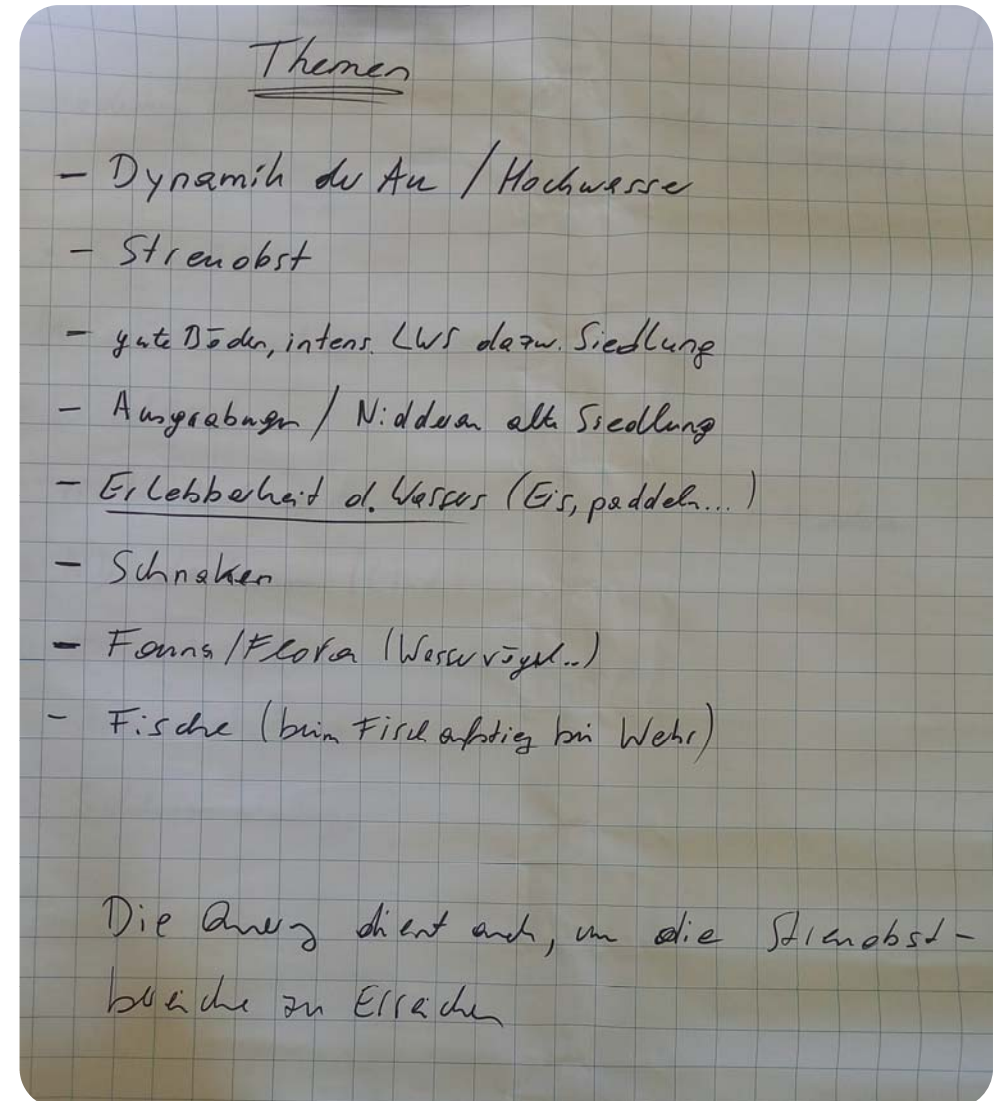 Themen
- Dynamik der Au / Hochwasser
- Streuobst
- gute Böden, intens. LWS dazw. Siedlung
- Ausgrabungen / Nidderau alte Siedlung
- Erlebbarkeit d. Wassers (Eis, paddeln...)
- Schnaken
- Fauna / Flora (Wasservögel..)
- Fische (beim Fischaufstieg bei Wehr)
Die dient auch, um die Streuobst-
bereiche zu Erreichen